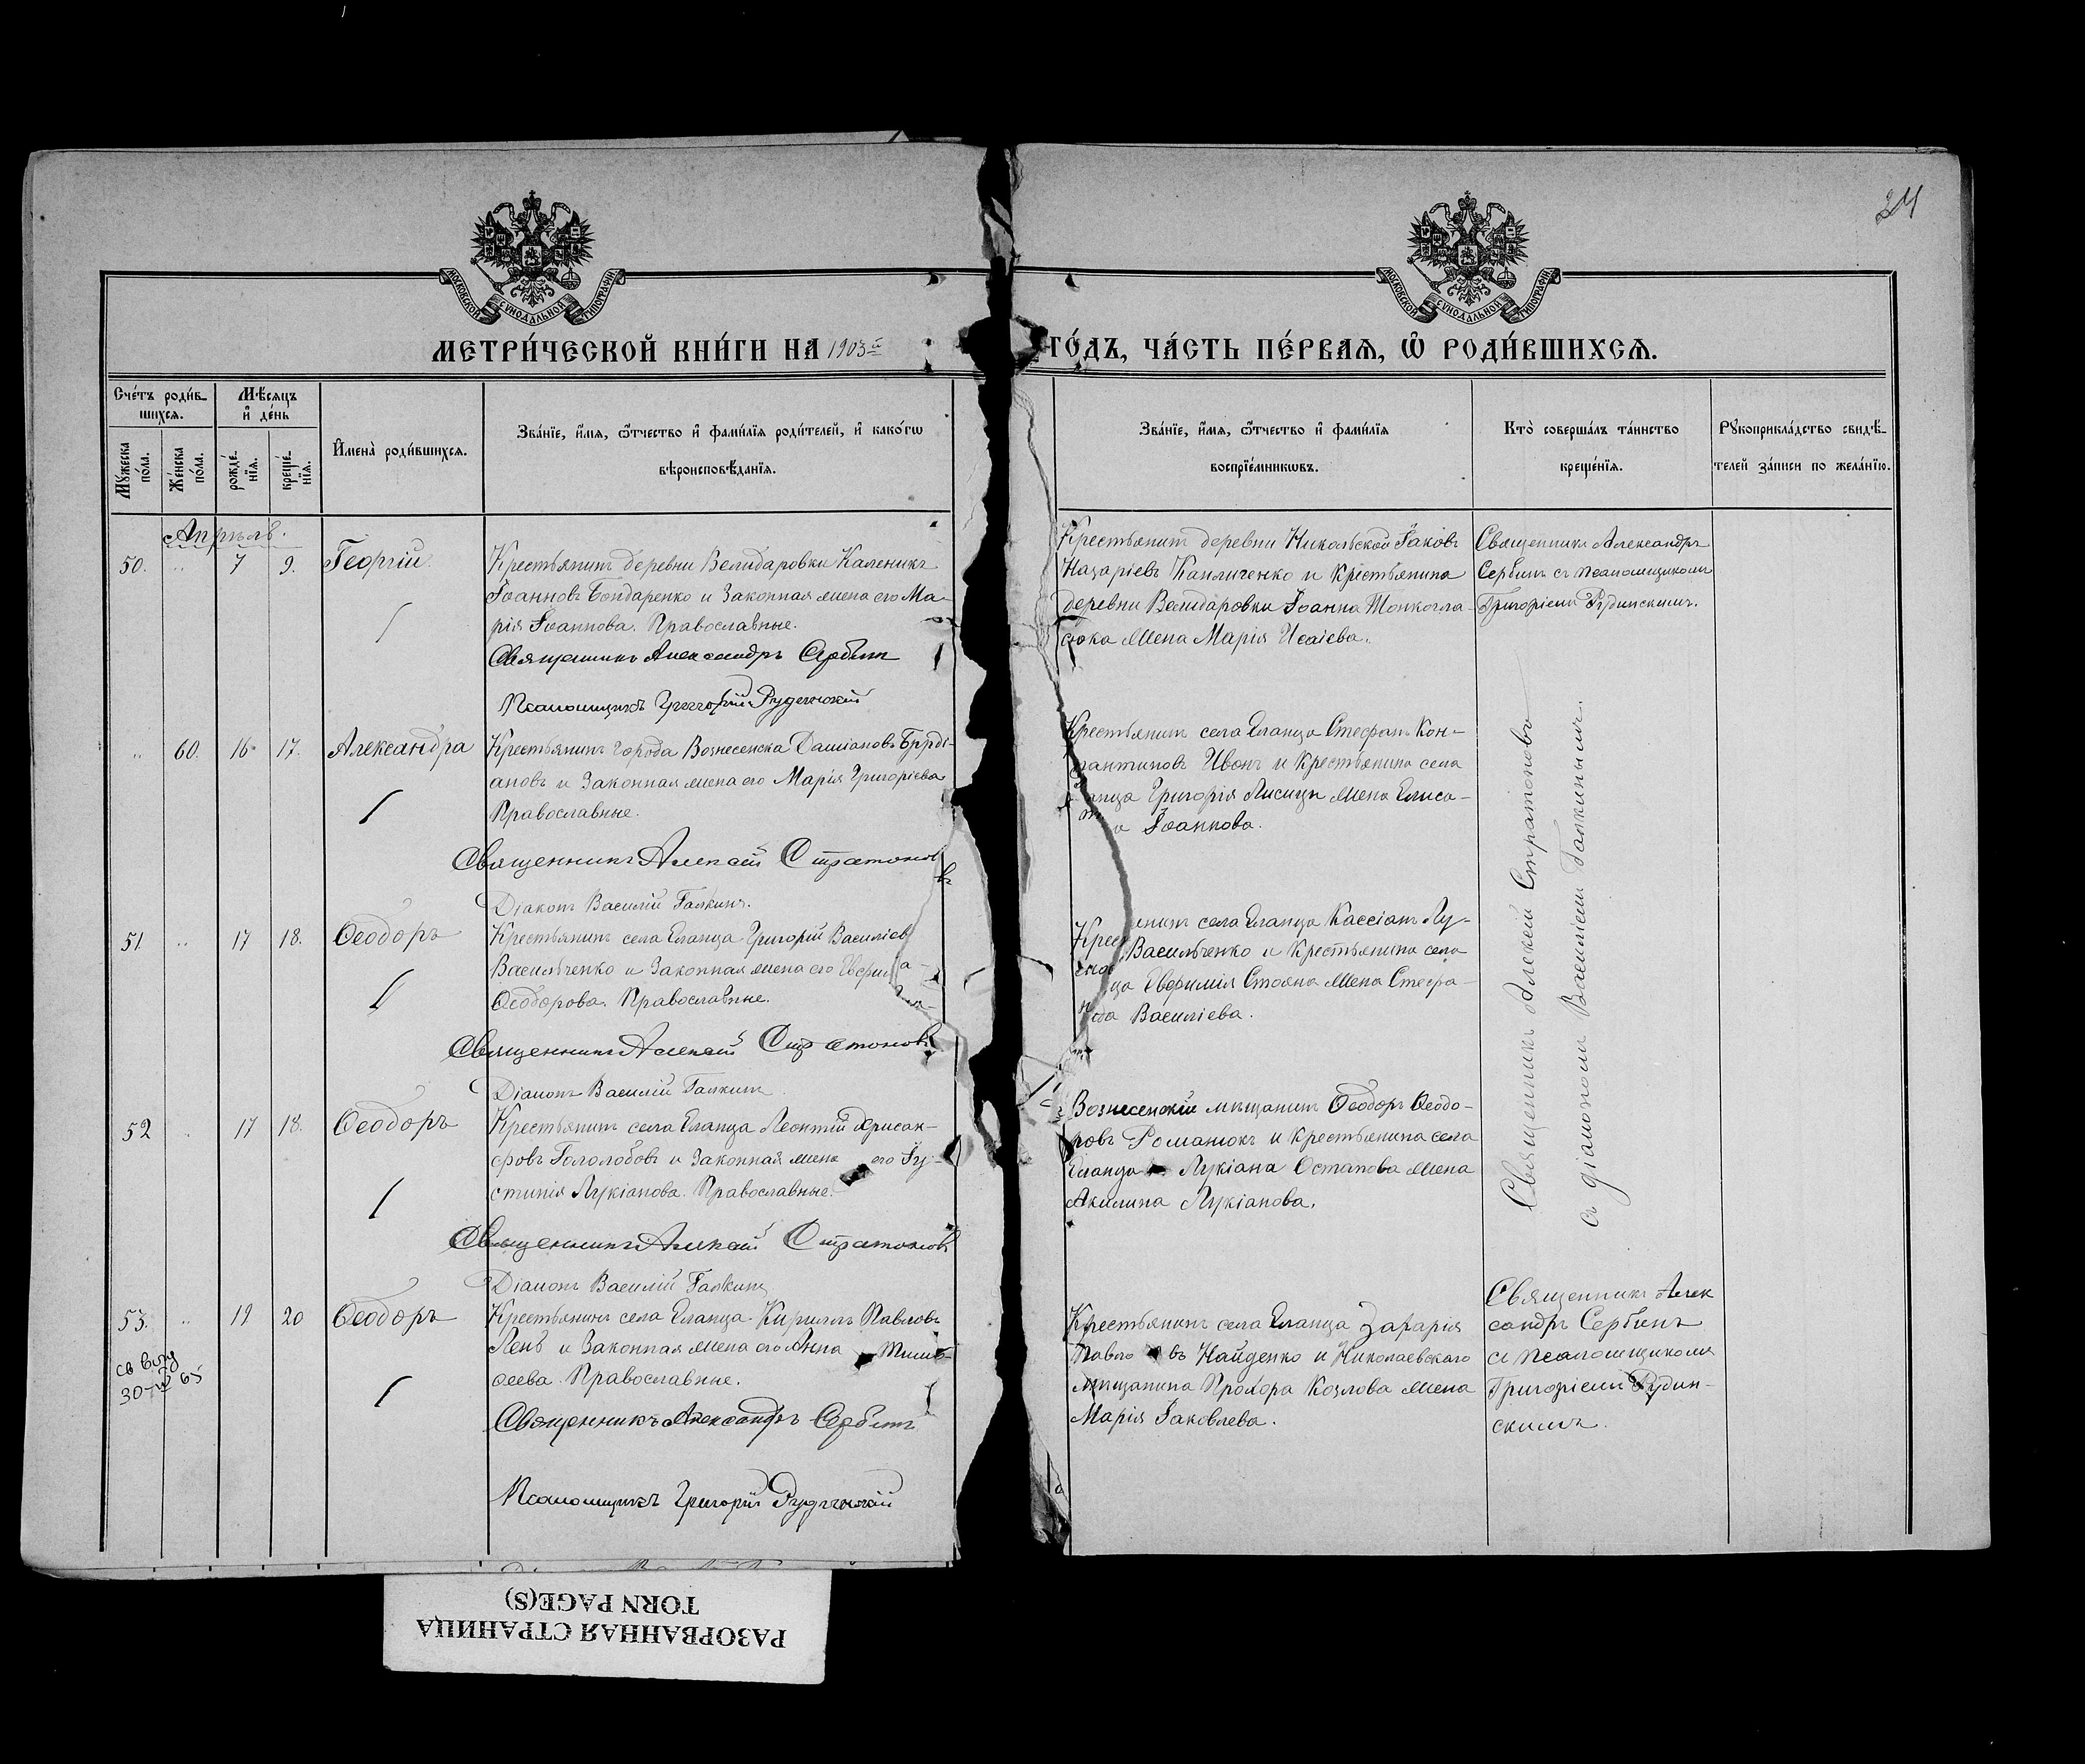 24
МОСКОВСКОЙ СѴНОДАЛЬНОЙ ТИПОГРАФІИ
МОСКОВСКОЙ СѴНОДАЛЬНОЙ ТИПОГРАФІИ
МЕТРИ́ЧЕСКОЙ КНИ́ГИ НА 1903й
ГО́ДЪ, ЧА́СТЬ ПЕ́РВАЯ, Ѡ҆ РОДИ́ВШИХСѦ.
Сче́тъ роди́в-
шихсѧ.
Мꙋ́жеска по́ла.
Же́нска по́ла.
Мѣ́сѧцъ
и҆ де́нь
рожде́-нїѧ.
креще́-нїѧ.
И҆мена̀ роди́вшихсѧ.
Зва́нїе, и҆́мѧ, ѻ҆́тчество и҆ фами́лїѧ роди́телей, и҆ како́гѡ
вѣроисповѣ́данїѧ.
Зва́нїе, и҆́мѧ, ѻ҆́тчество и҆ фами́лїѧ
воспрїе́мникѡвъ.
Кто̀ соверша́лъ та́инство
креще́нїѧ.
Рꙋкоприкла́дство свидѣ́-
телей за́писи по жела́нїю.
Апрѣль.
50. " 7 9. Георгій
Крестьянинъ деревни Велидаровки Каленикъ
Іоанновъ Бондаренко и законная жена его Ма-
рія Іоаннова. Православные.
Священникъ Александръ Сербинъ
Псаломщикъ Григорій Рудинскій
Крестьянинъ деревни Никольской Іаковъ
Назаріевъ Капличенко и крестьянина
деревни Велидаровки Іоанна Тонкогла-
сока жена Марія Исаіева.
Священникъ Александръ
Сербинъ съ псаломщикомъ
Григоріемъ Рудинскимъ.
" 60. 16 17. Александра
Крестьянинъ города Вознесенска Даміановъ
ановъ и законная жена его Марія Григоріева
Православные.
Священникъ Алексій Стратоновъ
Діаконъ Василій Галкинъ.
Крестьянинъ села Еланца Стефанъ Кон-
тантиновъ Ивонъ и крестьянина села
ланца Григорія Лисицы жена Елиса-
а Іоаннова.
Священникъ Алексій Стратоновъ
съ діакономъ Василіемъ Галкинымъ.
51 " 17 18. Ѳеодоръ
Крестьянинъ села Еланца Григорій Василіев
Васильченко и законная жена его Евфи а-
Ѳеодорова. Православные.
Священникъ Алексій Стратоновъ
Діаконъ Василій Галкинъ
Крес енинъ села Еланца Кассіанъ Лу-
Васильченко и крестьянина села
ца Евфимія Стояна жена Стефа-
ида Василіева.
52 " 17 18. Ѳеодоръ
Крестьянинъ села Еланца Леонтій Хрисан-
фовъ Гололобовъ и законная жена его Іу-
стинія Лукіанова. Православные.
Священникъ Алексій Стратоновъ
Діаконъ Василій Галкинъ
Вознесенскій мѣщанинъ Ѳеодоръ Ѳеодо-
ровъ Романюкъ и крестьянина села
Еланца Лукіана Остапова жена
Акилина Лукіанова.
53. " 19 20 Ѳеодоръ
Крестьянинъ села Еланца Кириллъ Павловъ
Ленъ и законная жена его Анна Тимо-
ѳеева. Православные.
Священникъ Александръ Сербинъ
Псаломщикъ Григорій Рудинскій
Крестьянинъ села Еланца Захарія
Павло въ Найденко и Николаевскаго
мѣщанина Прохора Козлова жена
Марія Іаковлева.
Священникъ Алек
сандръ Сербинъ
съ псаломщикомъ
Григоріемъ Рудин-
скимъ.
РАЗОРВАННАЯ СТРАНИЦА
TORN PAGE(S)